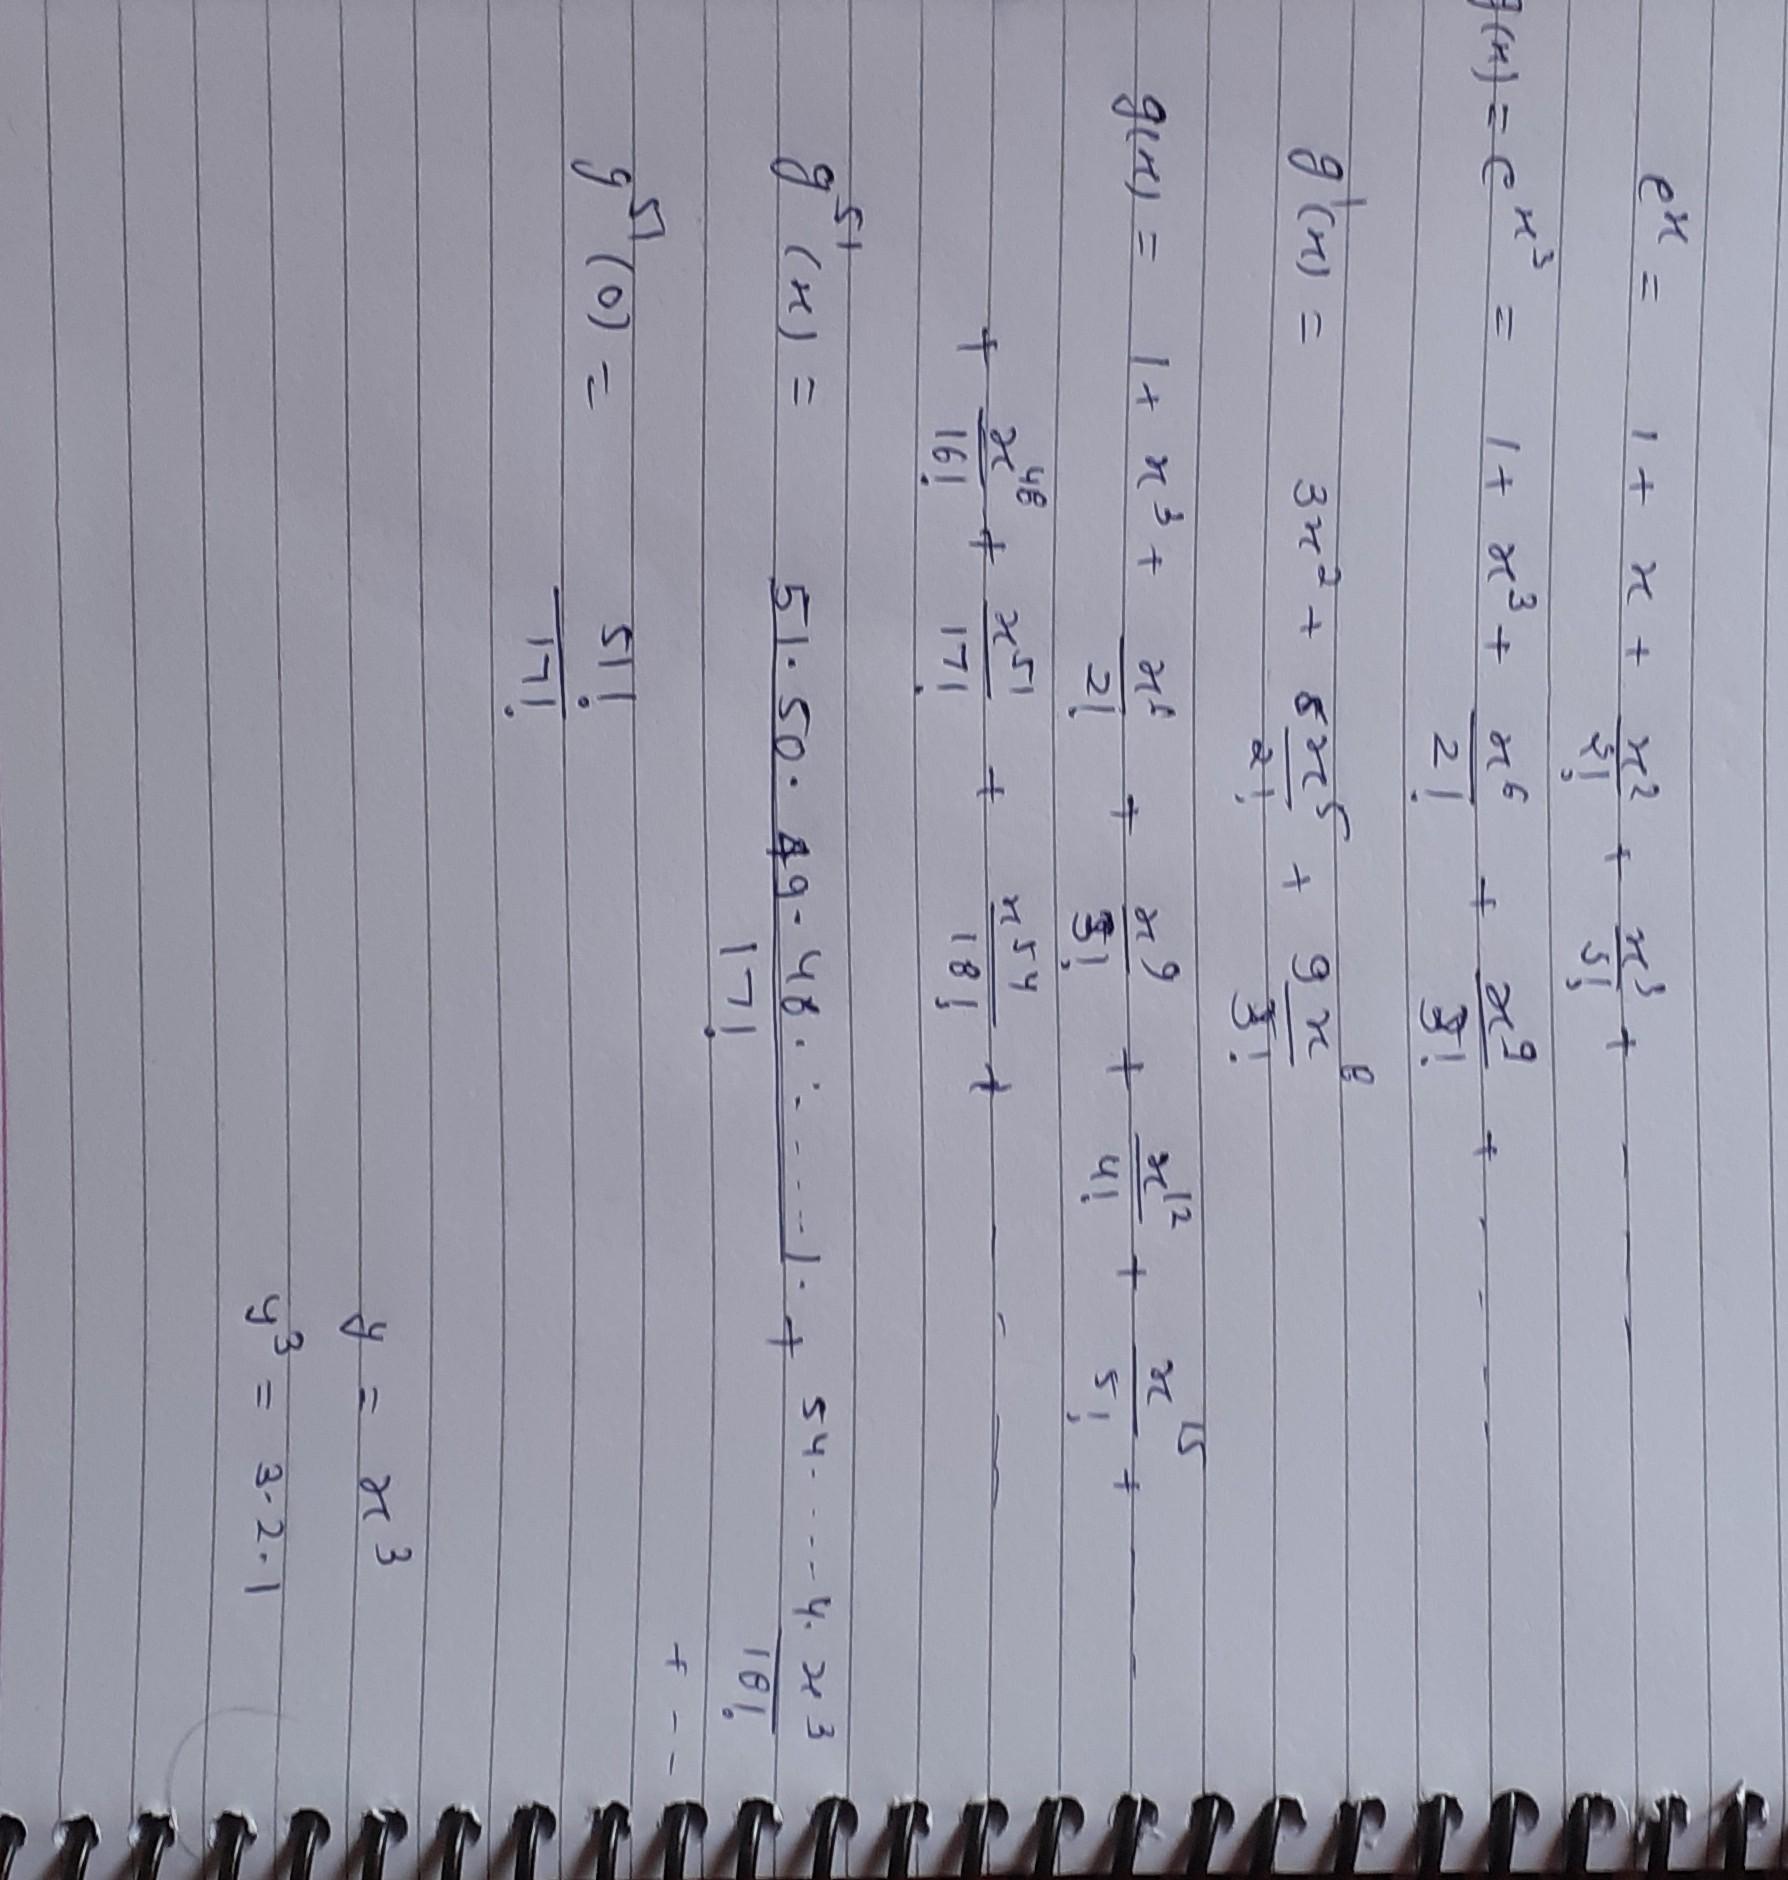 e^x = 1 + x + x^2/2! + x^3/3! + - - - -
g(x) = e^{x^3} = 1 + x^3 + x^6/2! + x^9/3! + - - - -
g'(x) = 3x^2 + 6x^5/2! + 9x^8/3!
g(x) = 1 + x^3 + x^6/2! + x^9/3! + x^12/4! + x^15/5! + - - -
+ x^48/16! + x^51/17! + x^54/18! + - - - -
g^51(x) = 51·50·49·48· - - - - 1·/17! + 54 · - - - 4·x^3/18!
+ - -
g^51(0) = 51!/17!
y = x^3
y^3 = 3·2·1